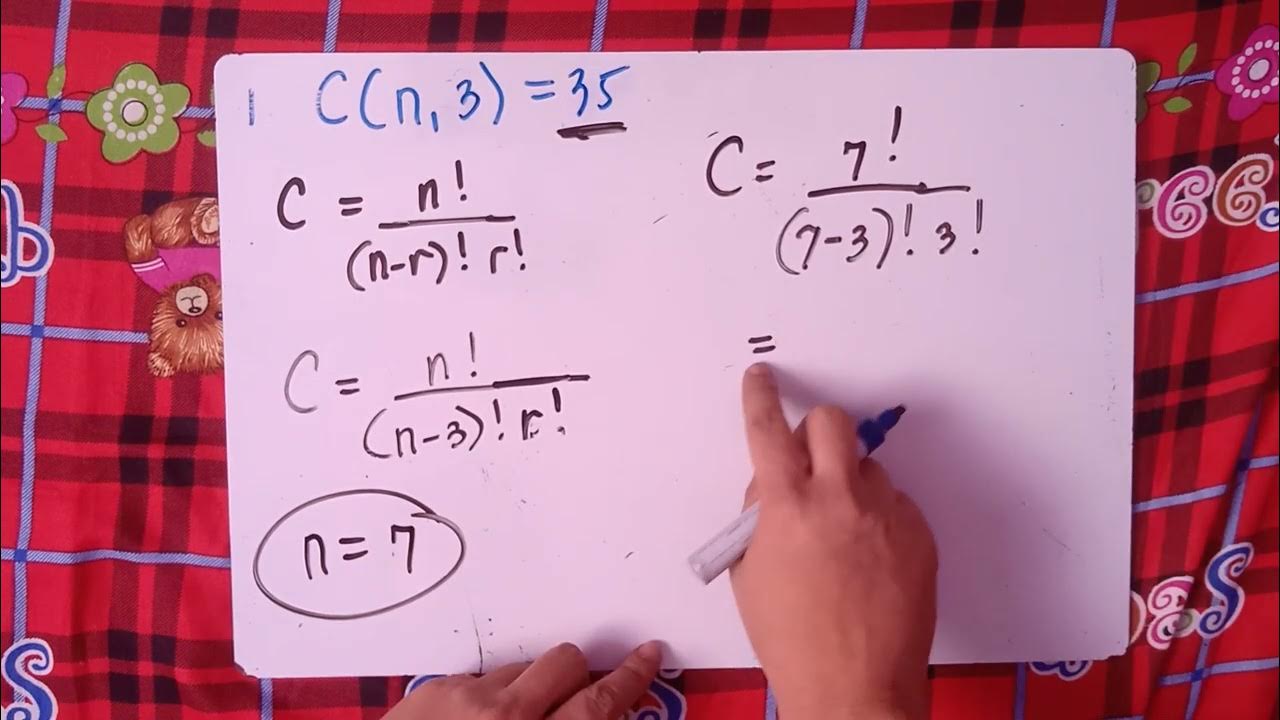 1 C(n,3) = 35
C = n!
(n-r)! r!
C = n!
(n-3)! r!
n = 7
C = 7!
(7-3)! 3!
=